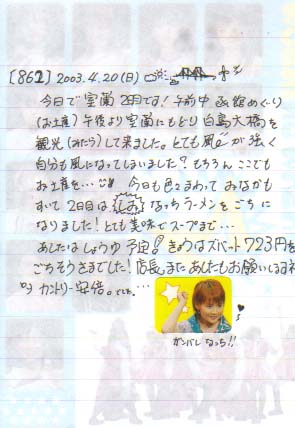 [862] 2003.4.20(日)
今日で室蘭2日目です！午前中 函館めぐり
(お土産) 午後より室蘭にもどり 白鳥大橋を
観光(みたら)して来ました。とても風が強く
自分も風になってしまいました？もちろん ここでも
お土産を… 今日も色々まわって おなかも
すいて 2日目は しお なっちラーメンを ごちに
なりました！とても美味でスープまで…
あしたはしょうゆ 予定！きょうはズバート723円を
ごちそうさまでした！店長、またあしたもお願いします
カントリー安倍。でした…
ガンバレ なっち!!